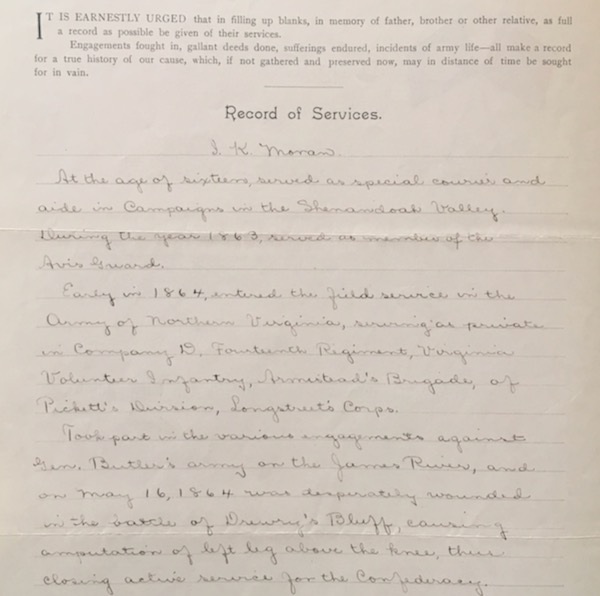 IT IS EARNESTLY URGED that in filling up blanks, in memory of father, brother or other relative, as full
a record as possible be given of their services.
Engagements fought in, gallant deeds done, sufferings endured, incidents of army life—all make a record
for a true history of our cause, which, if not gathered and preserved now, may in distance of time be sought
for in vain.
Record of Services.
I. K. Moran.
At the age of sixteen, served as special courier and
aide in Campaigns in the Shenandoah Valley.
During the year 1863, served as member of the
Avis Guard.
Early in 1864, entered the field service in the
Army of Northern Virginia, serving as private
in Company D. Fourteenth Regiment, Virginia
Volunteer Infantry, Armistead's Brigade, of
Pickett's Division, Longstreet's Corps.
Took part in the various engagements against
Gen. Butler's army on the James River, and
on May 16, 1864 was desperately wounded
in the battle of Drewry's Bluff, causing
amputation of left leg above the knee, thus
closing active service for the Confederacy.